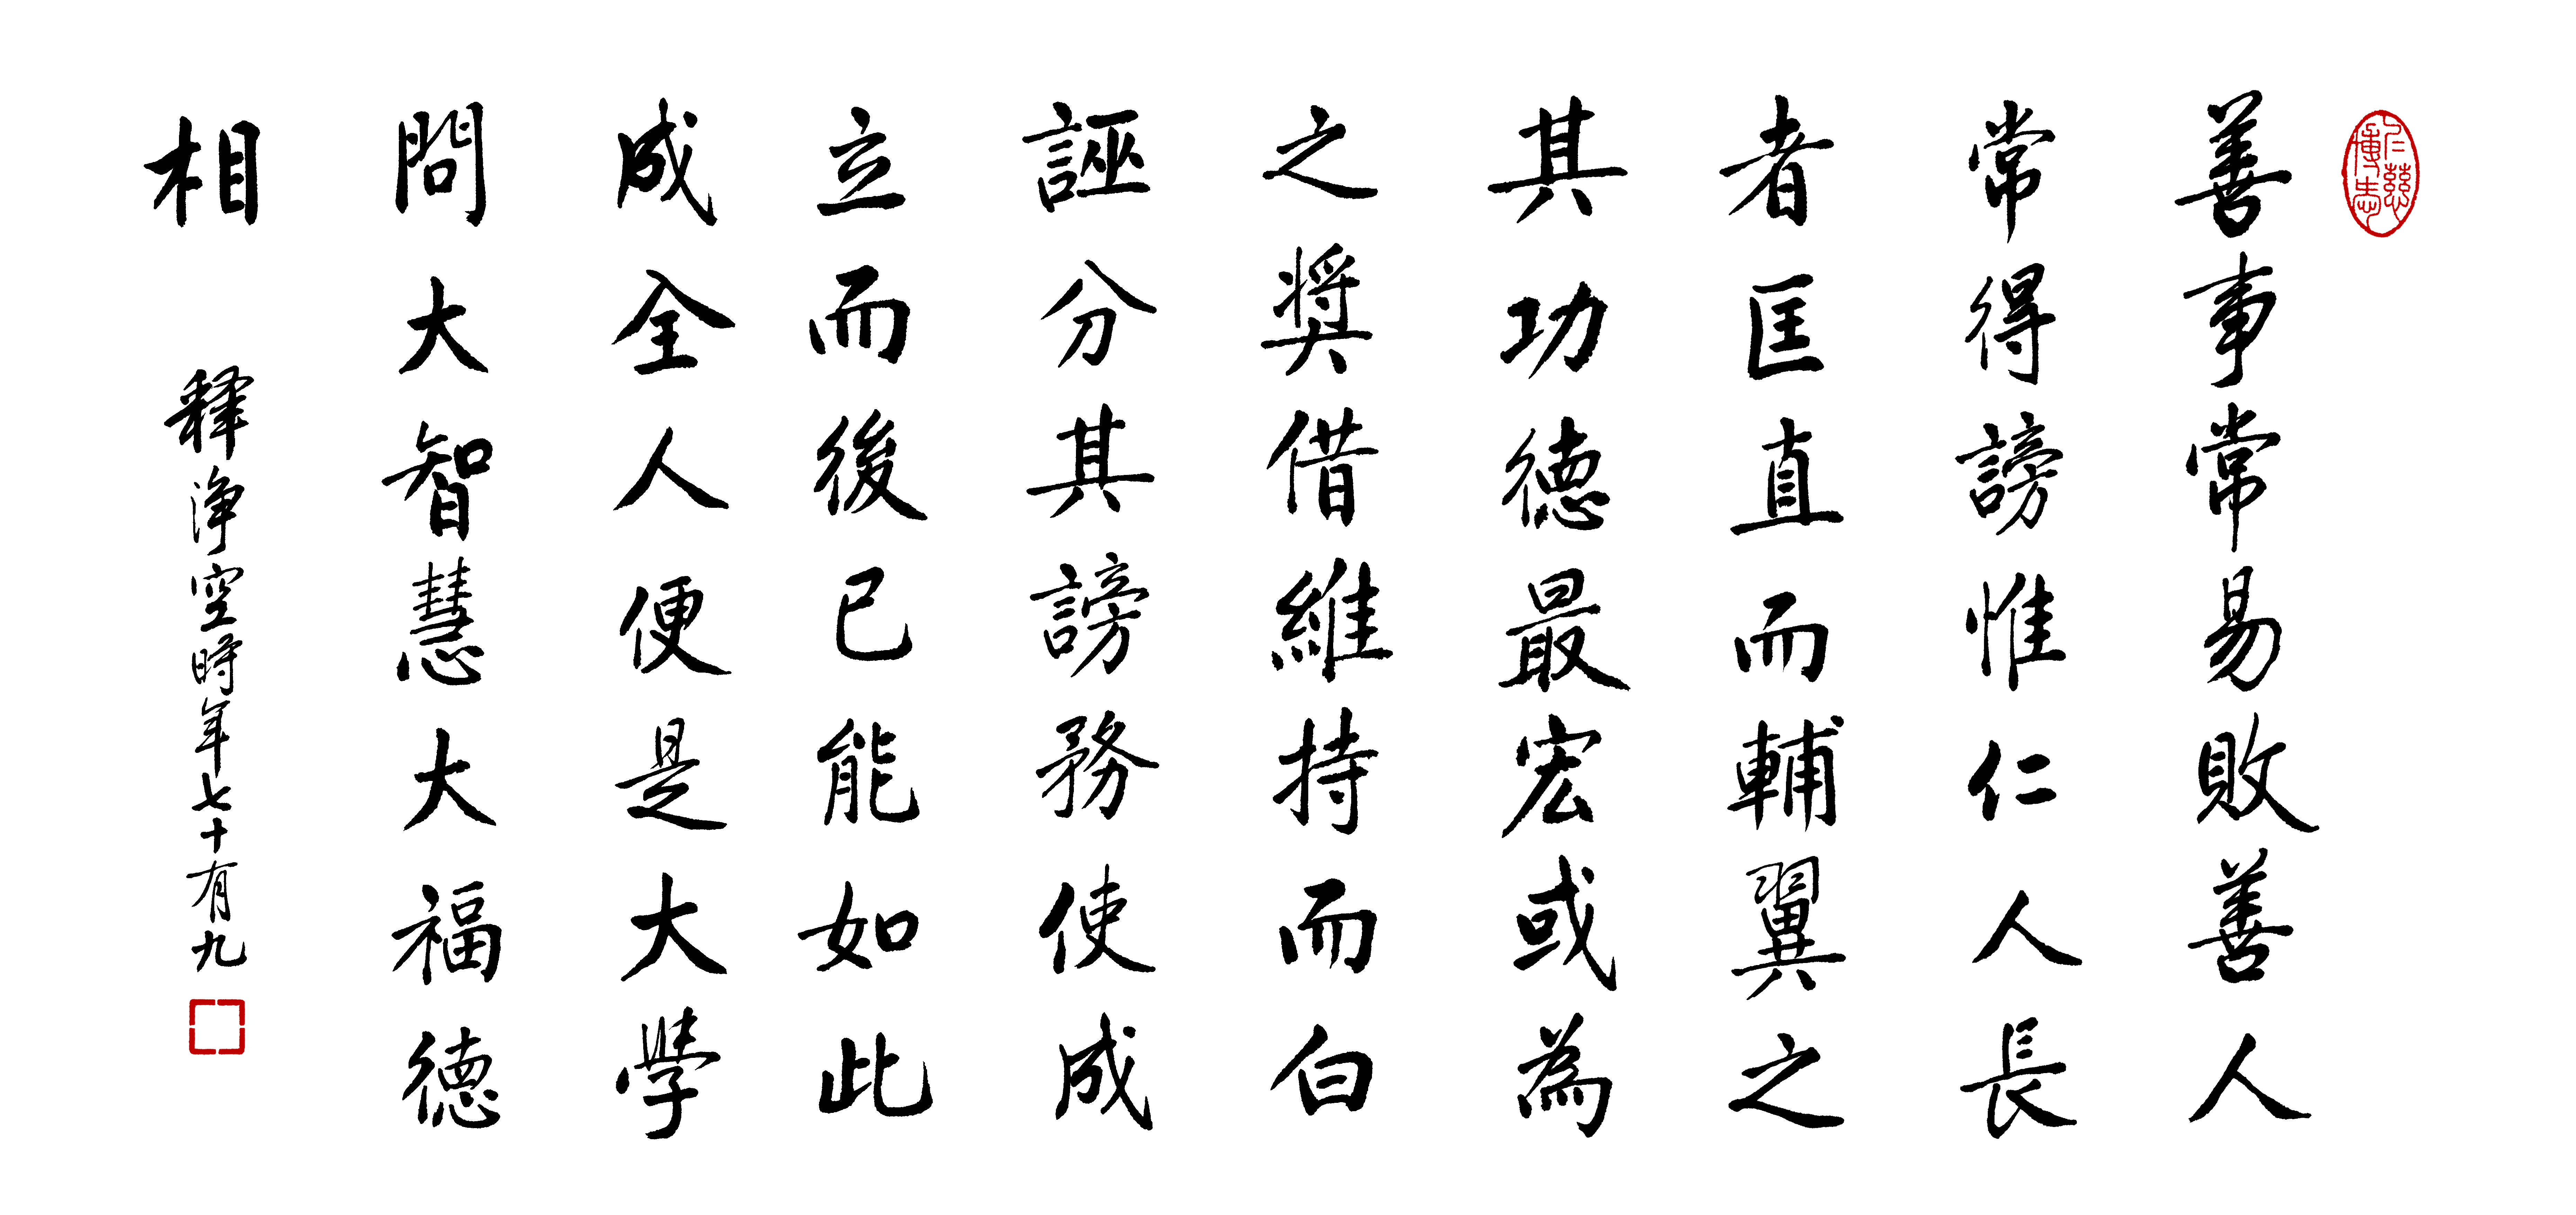 仁慈博愛
善事常易敗善人
常得謗惟仁人長
者匡直而輔翼之
其功德最宏或為
之奬借維持而白
誣分其謗務使成
立而後已能如此
成全人便是大學
問大智慧大福德
相
釋淨空時年七十有九